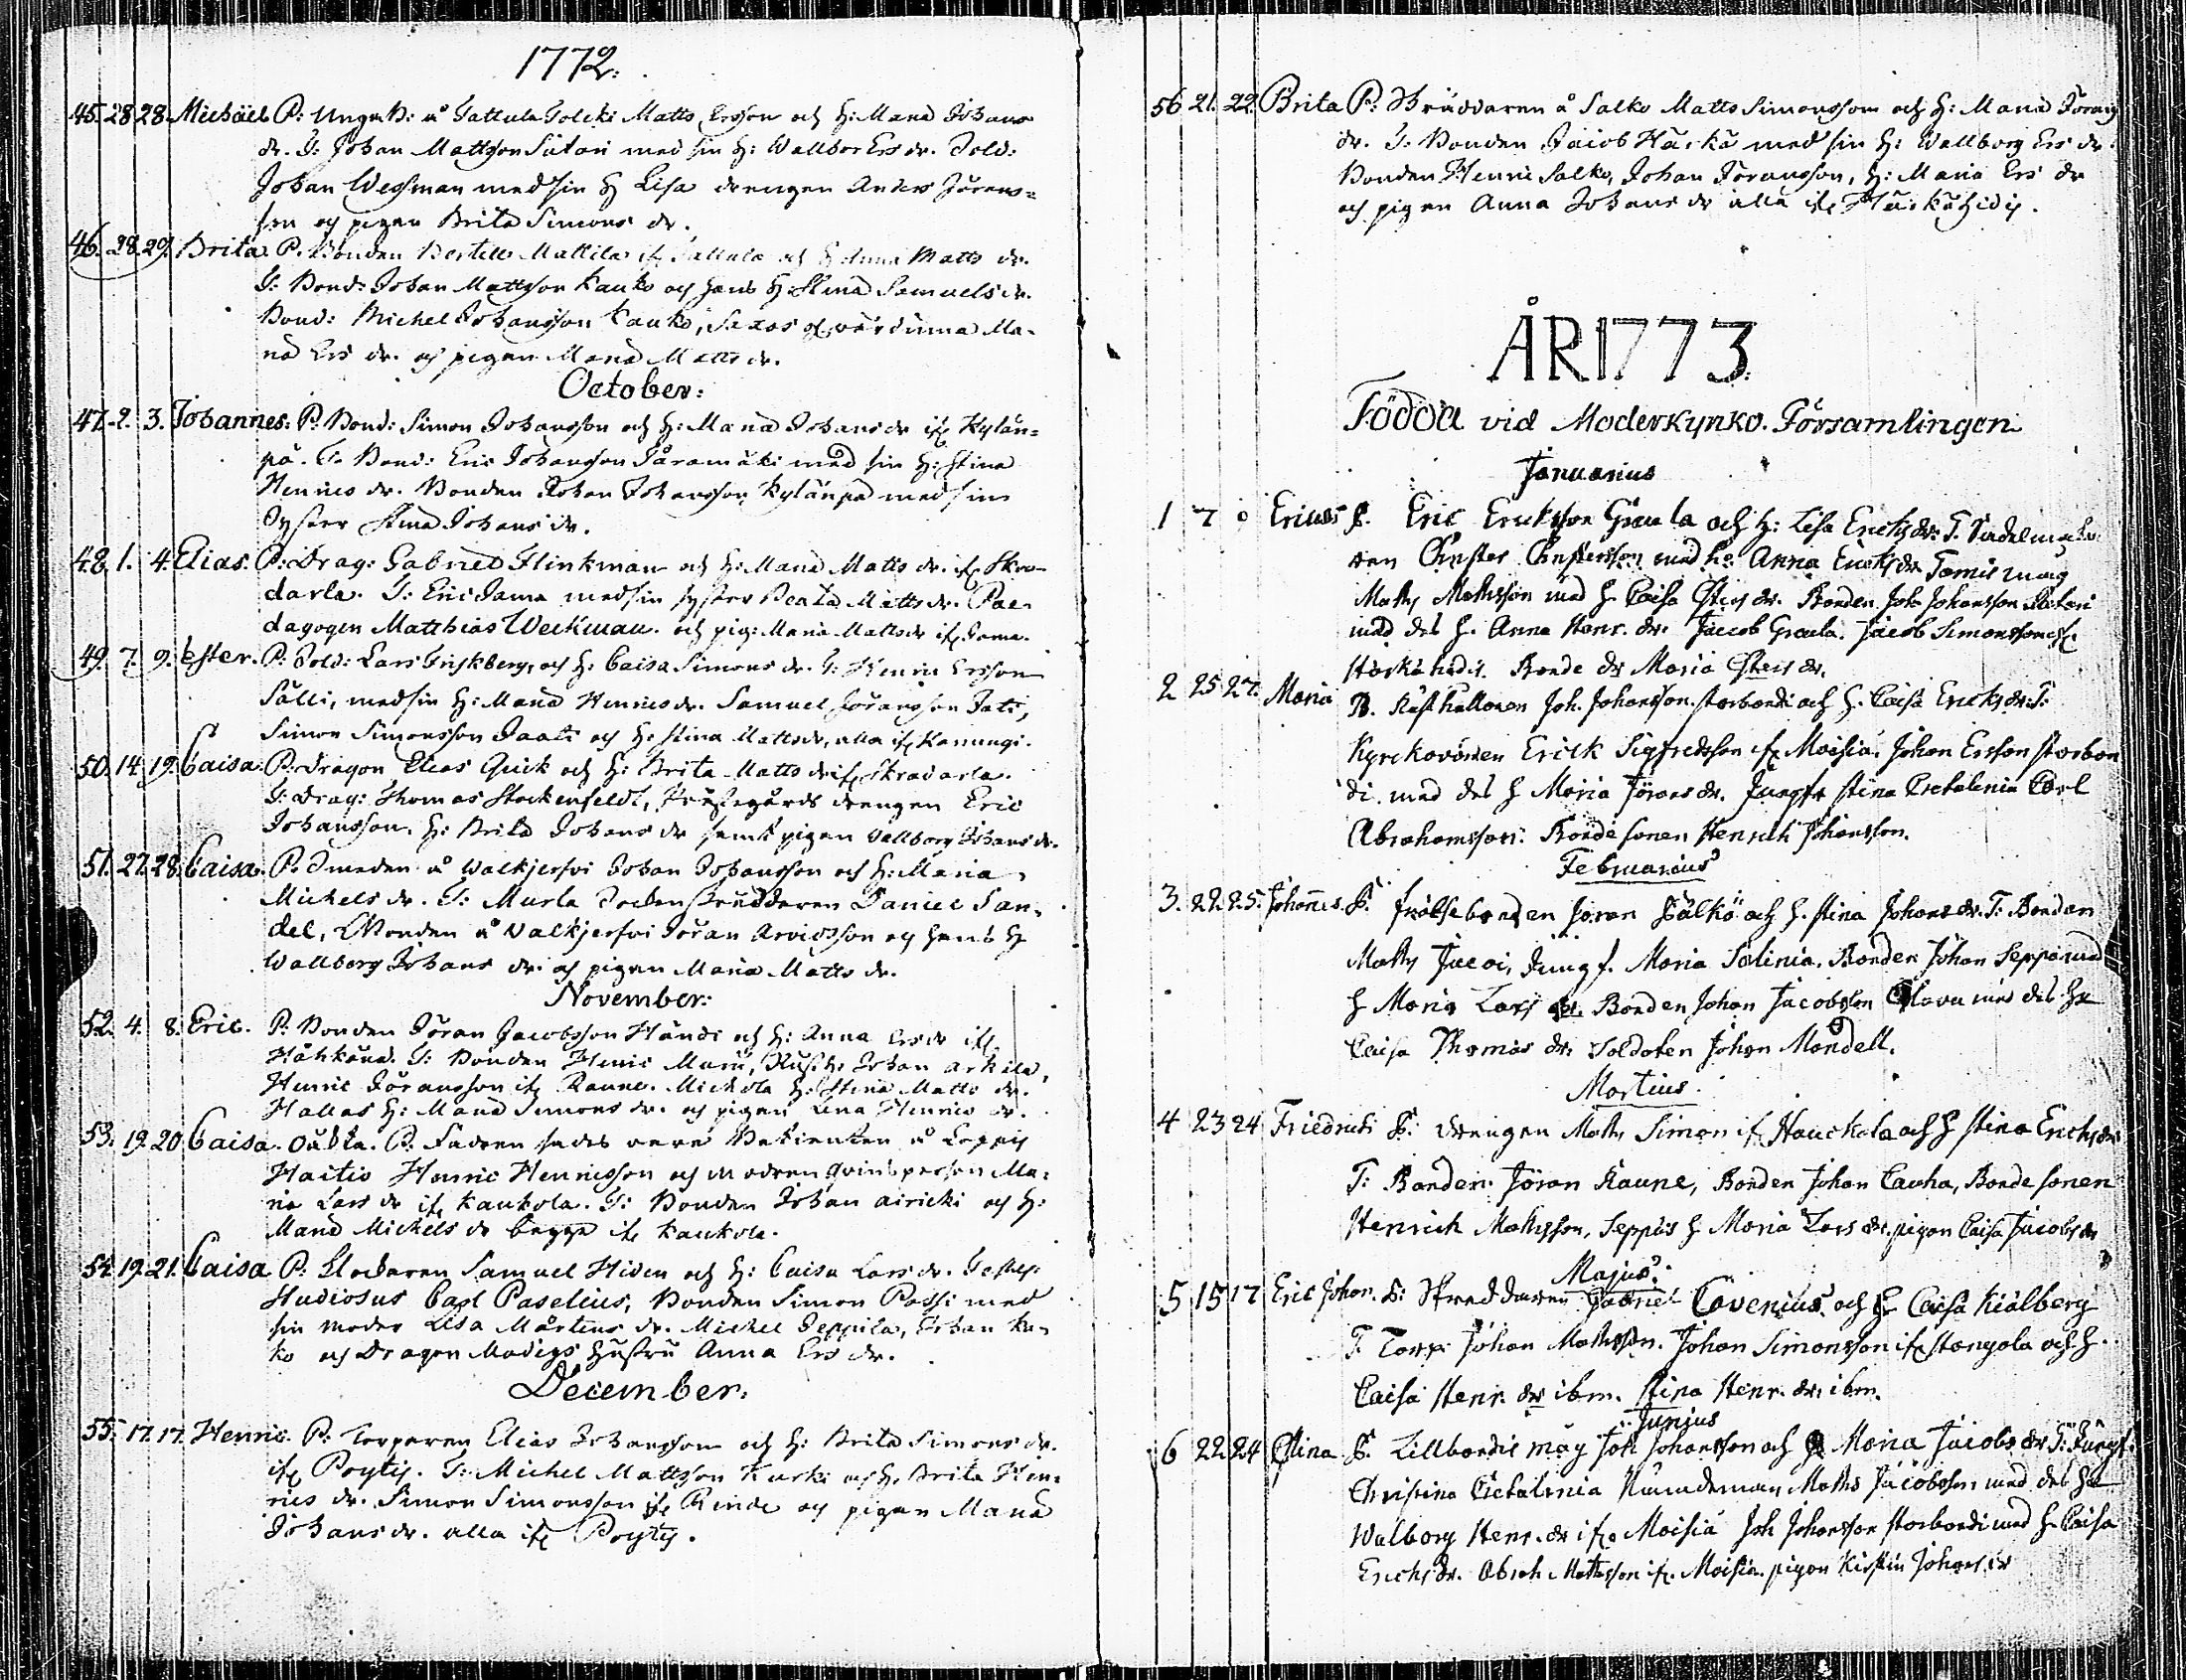 1772.
45. 28 28. Michäel P: Ungk: å Tattula Matts Ersson och H: Maria Johans
dr. T: Johan Mattsson Sutari med sin H: Wallbor Ers dr. Sold:
Johan Wessman med sin H Lisa drengen Anders Jörans=
son och pigan Brita Simons dr.
46. 28. 29. Brita P. Bonden Bertill Mattila if. och H: Anna Matts dr.
T: Bond: Johan Mattsson Kauko och hans H: Stina Samuels dr.
Bond: Michel Johansson Kauko, värdinna Ma-
ria Ers dr. och pigan Maria Matts dr.
October:
47. 2. 3. Johannes: P: Bond: Simon Johansson och H: Maria Johans dr if. Kylän=
pä. T. Bond: Eric Johansson med sin H: Stina
Henrics dr. Bonden Johan Johansson Kylänpä med sin
Syster Stina Johans dr.
48. 1. 4. Elias. P: Drag: Gabriel Flinkman och H: Maria Matts dr. if. Skra-
darla. T: Eric Jama med sin syster Beata Matts dr. Pae-
dagogen Matthias Weckman. och pig: Maria Matts dr if. Jama.
49. 7. 9. Ester. P: Sold: Lars och H: Caisa Simons dr. T: Henric Ersson
Sälli, med sin H: Maria Henrics dr. Samuel Jöransson
Simon Simonsson och H: Stina Matts dr, alla if. Kanungi.
50. 14. 19. Caisa. P: Dragon Elias Quick och H: Brita Matts dr if. Skradarla.
T: Drag: Thomas Stockenfeldt, Prästegårds drengen Eric
Johansson. H: Brita Johans dr samt pigan Vallborg Johans dr.
51. 27. 28. Caisa. P. Smeden å Walkjerfvi Johan Johansson och H: Maria
Michels dr. T: Murla Socken skräddaren Daniel San-
del, Bonden å Valkjerfvi Jöran Arvidsson och hans H
Wallborg Johans dr. och pigan Maria Matts dr.
November:
52. 4. 8. Eric. P: Bonden Jöran Jacobsson Händi och H: Anna Ers dr if.
T: Bonden Henric Johan Arkila,
Henric Jöransson if. Raune. Michola H: Stina Matts dr.
Hallas H: Maria Simons dr. och pigan Lena Henrics dr.
53. 19. 20 Caisa. Oäkta. P. Fadren sades vara å
Haitis Henric Henricsson och modren qvinsperson Ma-
ria Lars dr if. Kaukola. T: Bonden Johan Airicki och H:
Maria Michels dr begge if. Kaukola.
54. 19. 21. Caisa P: Klockaren Samuel Hiden och H: Caisa Lars dr.
Studiosus Carl Paselius, Bonden Simon Possi med
sin moder Lisa Mårtens dr. Michel Seppila, Johan Ku-
ko och Dragon Modigs Hustru Anna Ers dr.
December:
55. 17. 17. Henric. P: Torparen Elias Johansson och H: Brita Simons dr.
if. Poytis. T: Michel Mattsson Kurki och H: Brita Hen-
rics dr. Simon Simonsson if. Rinde och pigan Maria
Johans dr. alla if. Poytis.
56 21. 22. Brita P: Skräddaren å Salko Matts Simonsson och H: Maria Jörans
dr. T: Bonden Jacob Härkä med sin H: Wallborg Ers dr.
Bonden Henric Salko, Johan Jöransson, H: Maria Ers dr
och pigan Anna Johans dr alla if. Härkähidis.
ÅR 1773.
Födda vid Moderkyrko. Församlingen
Januarius
1 7 Ericus F. Eric Ericksson Graula och H: Lisa Ericks dr: T. Sadelmaka-
ren Christer Christersson med h: Anna Ericks dr
Maths Mathsson med H. Caisa dr. Bonden Joh Johansson
med dess H. Anna Henr. dr. Jacob Graula. Jacob Simonsson if.
Härkähidis. Bonde dr Maria dr.
2 25 27. Maria F. Rusthållaren Joh. Johansson storbondi och H. Caisa Ericks dr. T:
Kyrckovärden Erick Sigfredsson if. Moisia. Johan Ersson storbon
di med dess H Maria Jörans dr. Jungfr Stina Cretalenia Carl
Abrahamsson. Bonde sonen Henrich Johansson.
Februarius
3. 22. 25. Johannes. F. frälsebonden Jöran Sälkö och H. Stina Johans dr. T: Bonden
Maths Jungf. Maria Salinia. Bonden Johan Seppä med
H Maria Lars dr. Bonden Johan Jacobsson med dess Hu
Caisa Thomas dr. Soldaten Johan Mandell.
Martius.
4 23 24 Friedrich F: drengen Maths Simon if. Hauckola och H Stina Erichs dr
T: Bonden Jöran Raune, Bonden Johan Cauha, Bonde sonen
Henrich Mathsson, Seppäs H Maria Lars dr. pigan Caisa Jacobs dr
Majus.
5 15 17 Eric Johan. F: Skreddaren Gabriel Covenius och H Caisa Kiälberg
T. Torp: Johan Mathsson. Johan Simonsson if. och H.
Caisa Henr. dr ibm. Stina Henr. dr ibm.
Junius
6 22 24 Stina F. Lillbondis måg Joh Johansson och H Maria Jacobs dr T: Jungf.
Christina Cretalenia Nämdeman Maths Jacobsson med dess Hu
Walborg Henr. dr if. Moisia Joh Johansson storbondi med H Caisa
Erichs dr. Abrah Mathsson if. Moisia. pigan Kirstin Johans dr